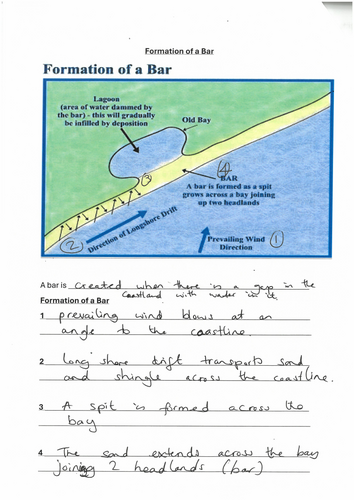 Formation of a Bar
Formation of a Bar
Lagoon
(area of water dammed by
the bar) - this will gradually
be infilled by deposition
Old Bay
③
④
BAR
A bar is formed as a spit
grows across a bay joining
up two headlands
② Direction of Longshore Drift
Prevailing Wind ①
Direction
A bar is created when there is a gap in the
coastland with water in it.
Formation of a Bar
1 prevailing wind blows at an
angle to the coastline.
2 long shore drift transports sand
and shingle across the coastline.
3 A spit is formed across the
bay
4 The sand extends across the bay
joining 2 headlands (bar)